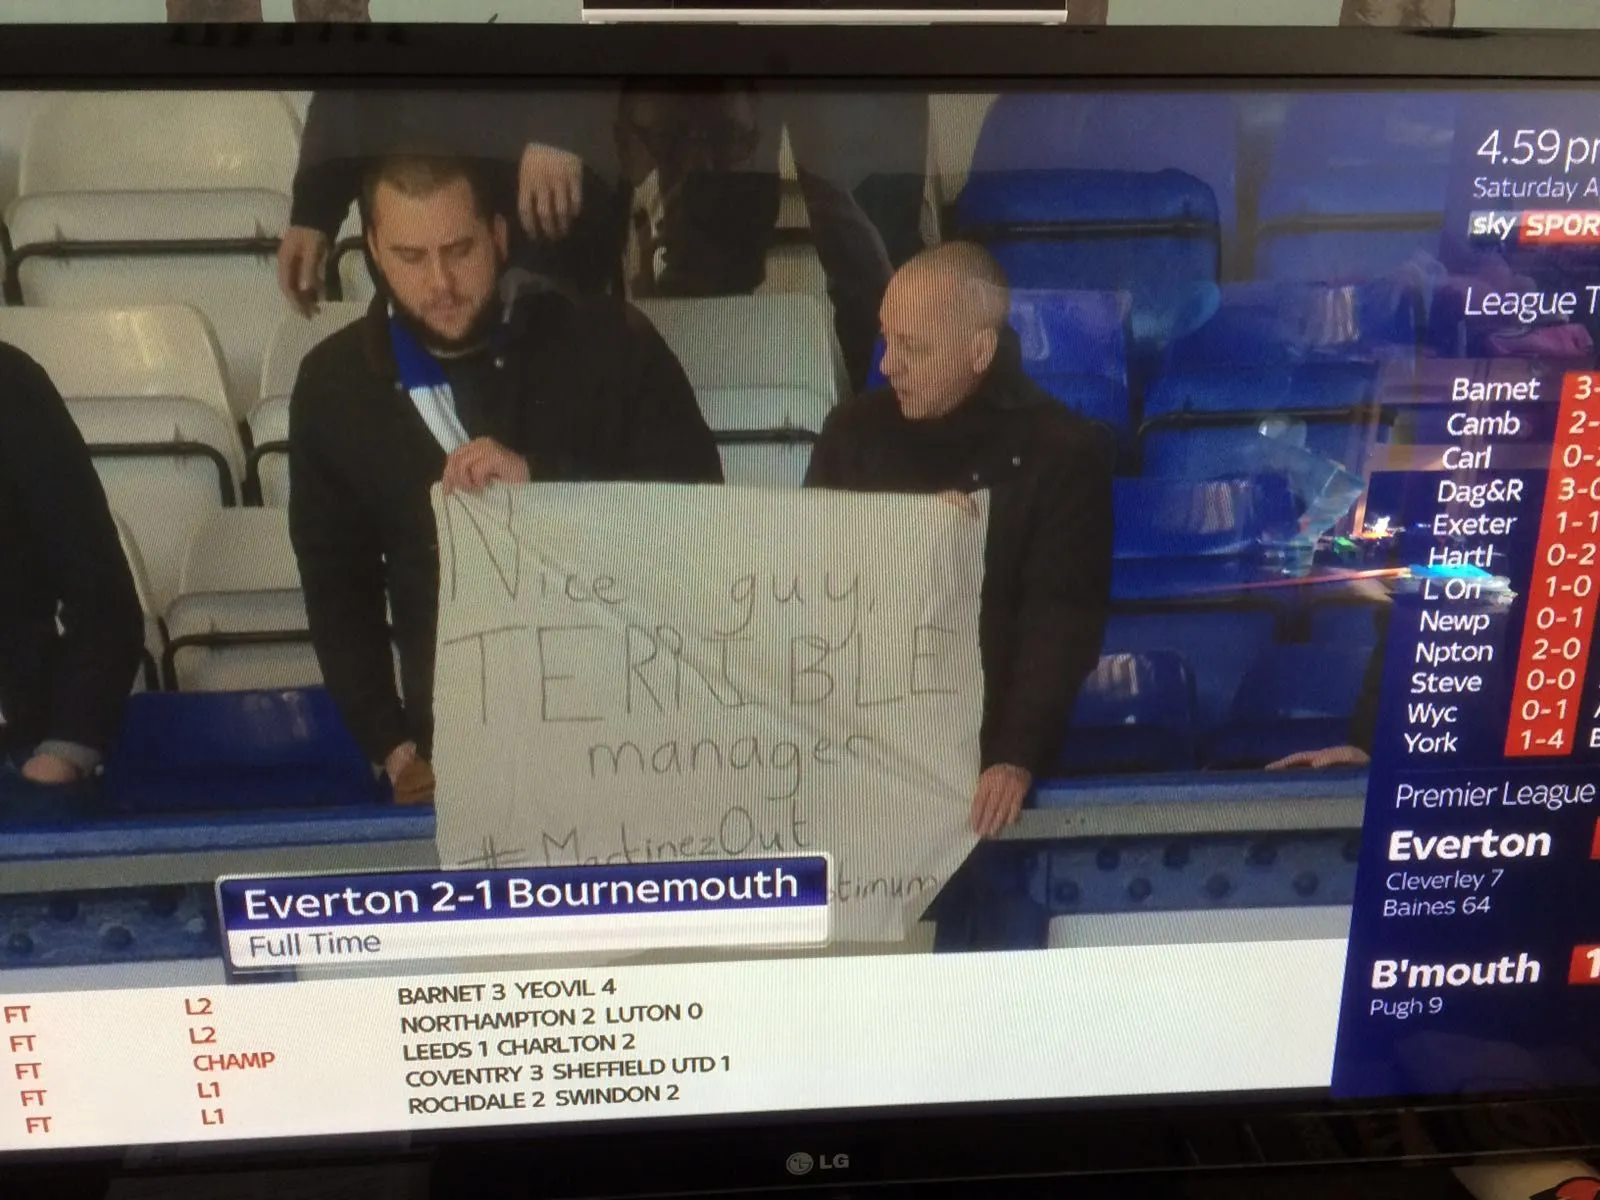 Nice guy,
TERRIBLE
manager
#MartinezOut
Everton 2-1 Bournemouth
Full Time
FT L2 BARNET 3 YEOVIL 4
FT L2 NORTHAMPTON 2 LUTON 0
FT CHAMP LEEDS 1 CHARLTON 2
FT L1 COVENTRY 3 SHEFFIELD UTD 1
FT L1 ROCHDALE 2 SWINDON 2
4.59
Saturday
sky
League
Barnet 3-
Camb 2-
Carl 0-
Dag&R 3-0
Exeter 1-1
Hartl 0-2
L Ori 1-0
Newp 0-1
Npton 2-0
Steve 0-0
Wyc 0-1
York 1-4
Premier League
Everton
Cleverley 7
Baines 64
B'mouth 1
Pugh 9
LG